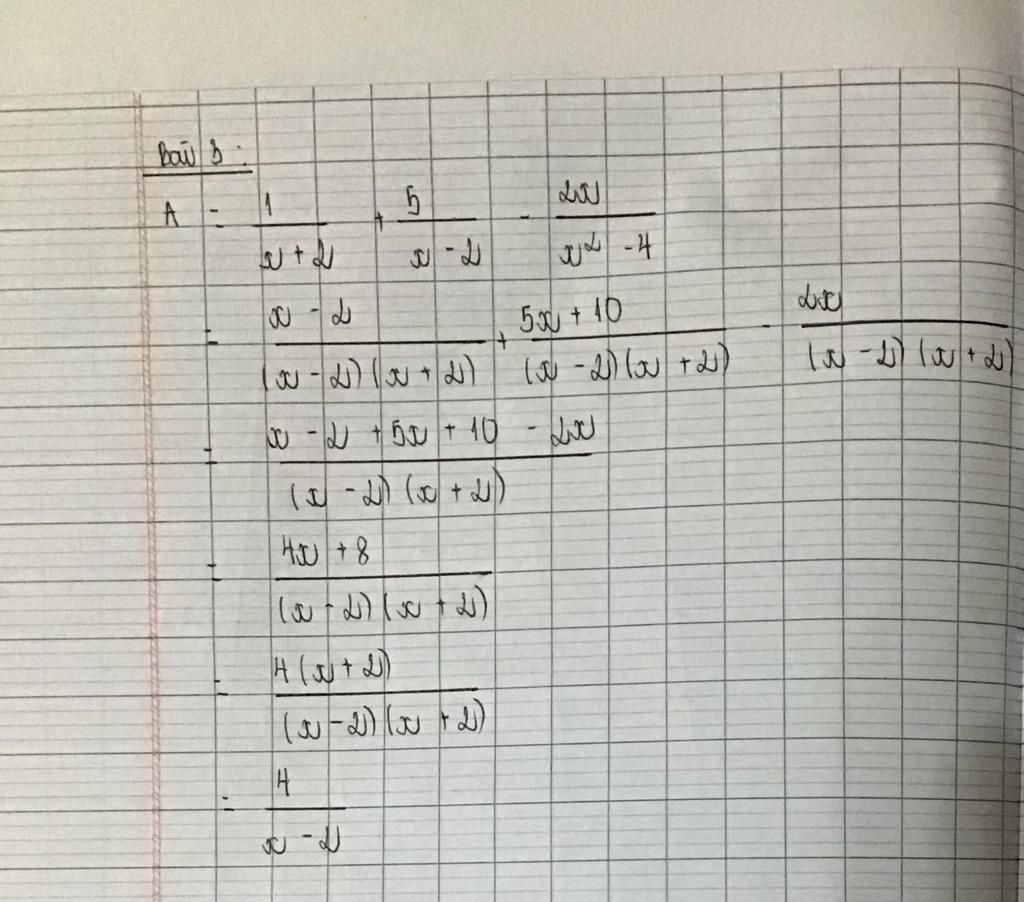 Bài 3:
A = 1/(x + 2) + 5/(x - 2) - 2x/(x² - 4)
= (x - 2)/((x - 2)(x + 2)) + (5x + 10)/((x - 2)(x + 2)) - 2x/((x - 2)(x + 2))
= (x - 2 + 5x + 10 - 2x)/((x - 2)(x + 2))
= (4x + 8)/((x - 2)(x + 2))
= 4(x + 2)/((x - 2)(x + 2))
= 4/(x - 2)